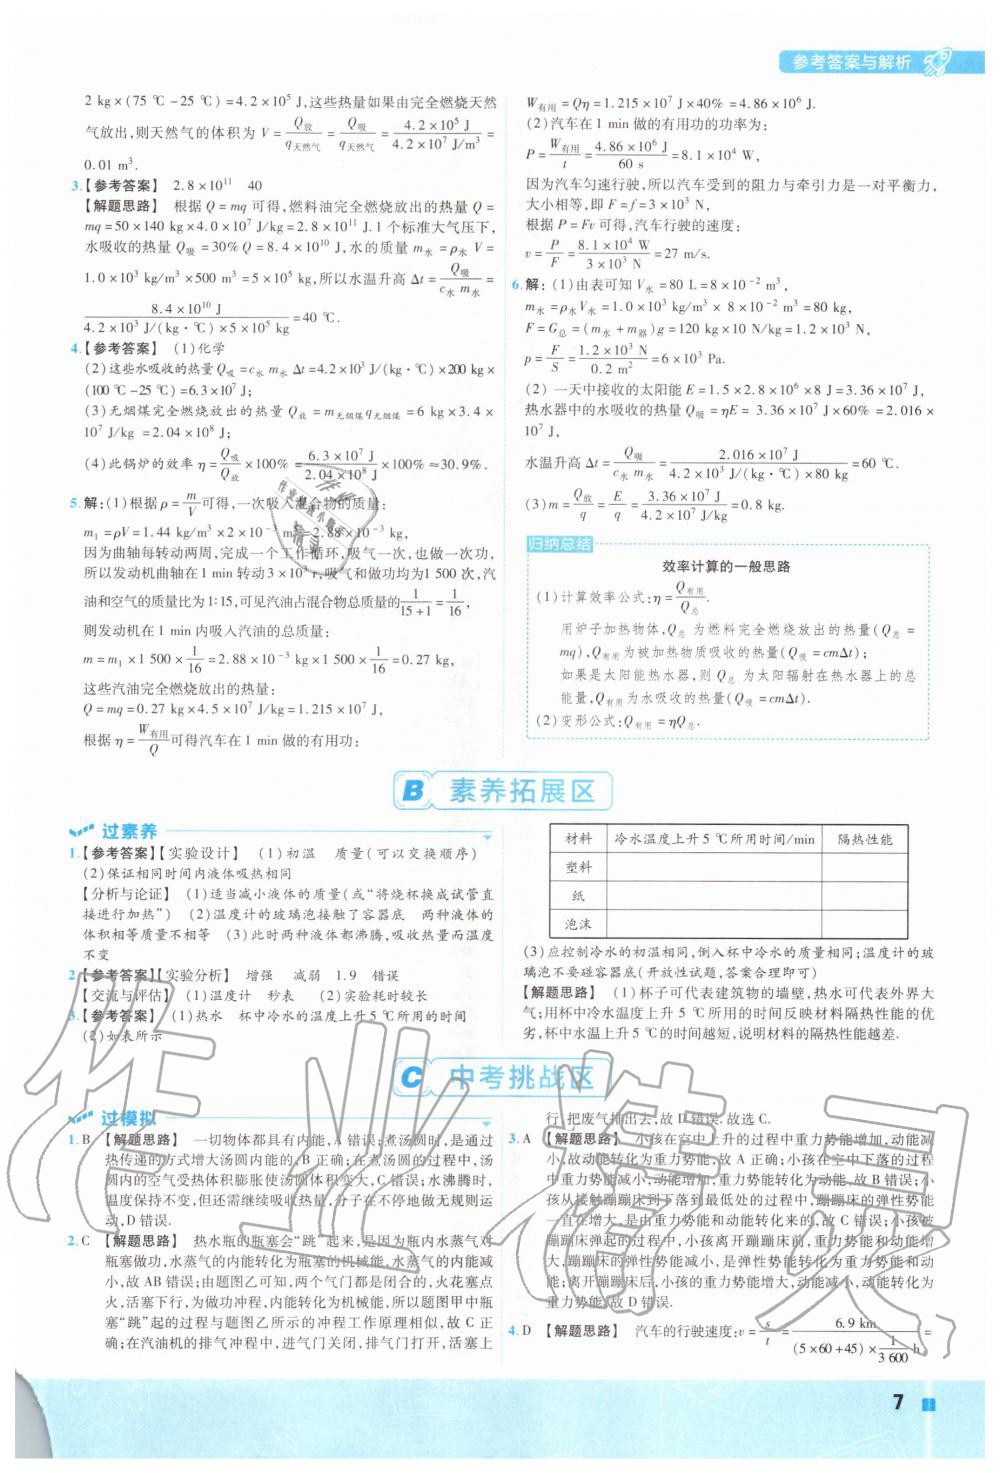 参考答案与解析
2 kg×(75 ℃-25 ℃)=4.2×10⁵ J,这些热量如果由完全燃烧天然
气放出,则天然气的体积为 V=Q放/q天然气=Q吸/q天然气=4.2×10⁵ J/4.2×10⁷ J/m³=
0.01 m³.
3.【参考答案】 2.8×10¹¹ 40
【解题思路】 根据 Q=mq 可得,燃料油完全燃烧放出的热量 Q=
mq=50×140 kg×4.0×10⁷ J/kg=2.8×10¹¹ J.1 个标准大气压下,
水吸收的热量 Q吸=30%Q=8.4×10¹⁰ J,水的质量 m水=ρ水 V=
1.0×10³ kg/m³×500 m³=5×10⁵ kg,所以水温升高 Δt=Q吸/c水 m水=
8.4×10¹⁰ J/4.2×10³ J/(kg·℃)×5×10⁵ kg=40 ℃.
4.【参考答案】 (1)化学
(2)这些水吸收的热量 Q吸=c水 m水 Δt=4.2×10³ J/(kg·℃)×200 kg×
(100 ℃-25 ℃)=6.3×10⁷ J;
(3)无烟煤完全燃烧放出的热量 Q放=m无烟煤q无烟煤=6 kg×3.4×
10⁷ J/kg=2.04×10⁸ J;
(4)此锅炉的效率 η=Q吸/Q放×100%=6.3×10⁷ J/2.04×10⁸ J×100%≈30.9%.
5.解:(1)根据 ρ=m/V可得,一次吸入混合物的质量:
m₁=ρV=1.44 kg/m³×2×10⁻³ m³=2.88×10⁻³ kg,
因为曲轴每转动两周,完成一个工作循环,吸气一次,也做一次功,
所以发动机曲轴在 1 min 转动 3×10³ r,吸气和做功均为 1 500 次,汽
油和空气的质量比为 1:15,可见汽油占混合物总质量的1/15+1=1/16,
则发动机在 1 min 内吸入汽油的总质量:
m=m₁×1 500×1/16=2.88×10⁻³ kg×1 500×1/16=0.27 kg,
这些汽油完全燃烧放出的热量:
Q=mq=0.27 kg×4.5×10⁷ J/kg=1.215×10⁷ J,
根据 η=W有用/Q可得汽车在 1 min 做的有用功:
W有用=Qη=1.215×10⁷ J×40%=4.86×10⁶ J.
(2)汽车在 1 min 做的有用功的功率为:
P=W有用/t=4.86×10⁶ J/60 s=8.1×10⁴ W,
因为汽车匀速行驶,所以汽车受到的阻力与牵引力是一对平衡力,
大小相等,即 F=f=3×10³ N,
根据 P=Fv 可得,汽车行驶的速度:
v=P/F=8.1×10⁴ W/3×10³ N=27 m/s.
6.解:(1)由表可知 V水=80 L=8×10⁻² m³,
m水=ρ水V水=1.0×10³ kg/m³×8×10⁻² m³=80 kg,
F=G总=(m水+m器)g=120 kg×10 N/kg=1.2×10³ N,
p=F/S=1.2×10³ N/0.2 m²=6×10³ Pa.
(2) 一天中接收的太阳能 E=1.5×2.8×10⁶×8 J=3.36×10⁷ J,
热水器中的水吸收的热量 Q吸=ηE= 3.36×10⁷ J×60%=2.016×
10⁷ J,
水温升高 Δt=Q吸/c水 m水=2.016×10⁷ J/4.2×10³ J/(kg·℃)×80 kg=60 ℃.
(3)m=Q放/q=E/q=3.36×10⁷ J/4.2×10⁷ J/kg=0.8 kg.
归纳总结
效率计算的一般思路
(1)计算效率公式:η=Q有用/Q总.
用炉子加热物体,Q总 为燃料完全燃烧放出的热量(Q总=
mq),Q有用为被加热物质吸收的热量(Q吸=cmΔt);
如果是太阳能热水器,则 Q总 为太阳辐射在热水器上的总
能量,Q有用为水吸收的热量(Q吸=cmΔt).
(2)变形公式:Q有用=ηQ总.
B 素养拓展区
过素养
1.【参考答案】【实验设计】 (1)初温 质量(可以交换顺序)
(2)保证相同时间内液体吸热相同
【分析与论证】 (1)适当减小液体的质量(或“将烧杯换成试管直
接进行加热”) (2)温度计的玻璃泡接触了容器底 两种液体的
体积相等质量不相等 (3)此时两种液体都沸腾,吸收热量而温度
不变
2.【参考答案】【实验分析】 增强 减弱 1.9 错误
【交流与评估】 (1)温度计 秒表 (2)实验耗时较长
3.【参考答案】 (1)热水 杯中冷水的温度上升 5 ℃所用的时间
(2)如表所示
材料 冷水温度上升 5 ℃所用时间/min 隔热性能
塑料
纸
泡沫
(3)应控制冷水的初温相同,倒入杯中冷水的质量相同;温度计的玻
璃泡不要碰容器底(开放性试题,答案合理即可)
【解题思路】 (1)杯子可代表建筑物的墙壁,热水可代表外界大
气;用杯中冷水温度上升 5 ℃所用的时间反映材料隔热性能的优
劣,杯中水温上升 5 ℃的时间越短,说明材料的隔热性能越差.
C 中考挑战区
过模拟
1.B 【解题思路】 一切物体都具有内能,A 错误;煮汤圆时,是通过
热传递的方式增大汤圆内能的,B 正确;在煮汤圆的过程中,汤
圆内的空气受热体积膨胀使汤圆体积变大,C 错误;水沸腾时,
温度保持不变,但还需继续吸收热量,分子在不停地做无规则运
动,D 错误.
2.C 【解题思路】 热水瓶的瓶塞会“跳”起来,是因为瓶内水蒸气对
瓶塞做功,水蒸气的内能转化为瓶塞的机械能,水蒸气的内能减
小,故 AB 错误;由题图乙可知,两个气门都是闭合的,火花塞点
火,活塞下行,为做功冲程,内能转化为机械能,所以题图甲中瓶
塞“跳”起的过程与题图乙所示的冲程工作原理相似,故 C 正
确;在汽油机的排气冲程中,进气门关闭,排气门打开,活塞上
行,把废气排出去,故 D 错误.故选 C.
3.A 【解题思路】 小孩在空中上升的过程中重力势能增加,动能减
小,故动能转化为重力势能,故 A 正确;小孩在空中下落的过程
中重力势能减小,动能增加,重力势能转化为动能,故 B 错误;小
孩从接触蹦蹦床到下落到最低处的过程中,蹦蹦床的弹性势能
一直在增大,是由重力势能和动能转化来的,故 C 错误;小孩被
蹦蹦床弹起的过程中,小孩离开蹦蹦床前,重力势能、动能增
大,蹦蹦床的弹性势能减小,是弹性势能转化为重力势能和动
能;离开蹦蹦床后,小孩的重力势能增大,动能减小,动能转化为
重力势能,故 D 错误.
4.D 【解题思路】 汽车的行驶速度:v=s/t=6.9 km/(5×60+45)×1/3 600 h=
7
作业精灵